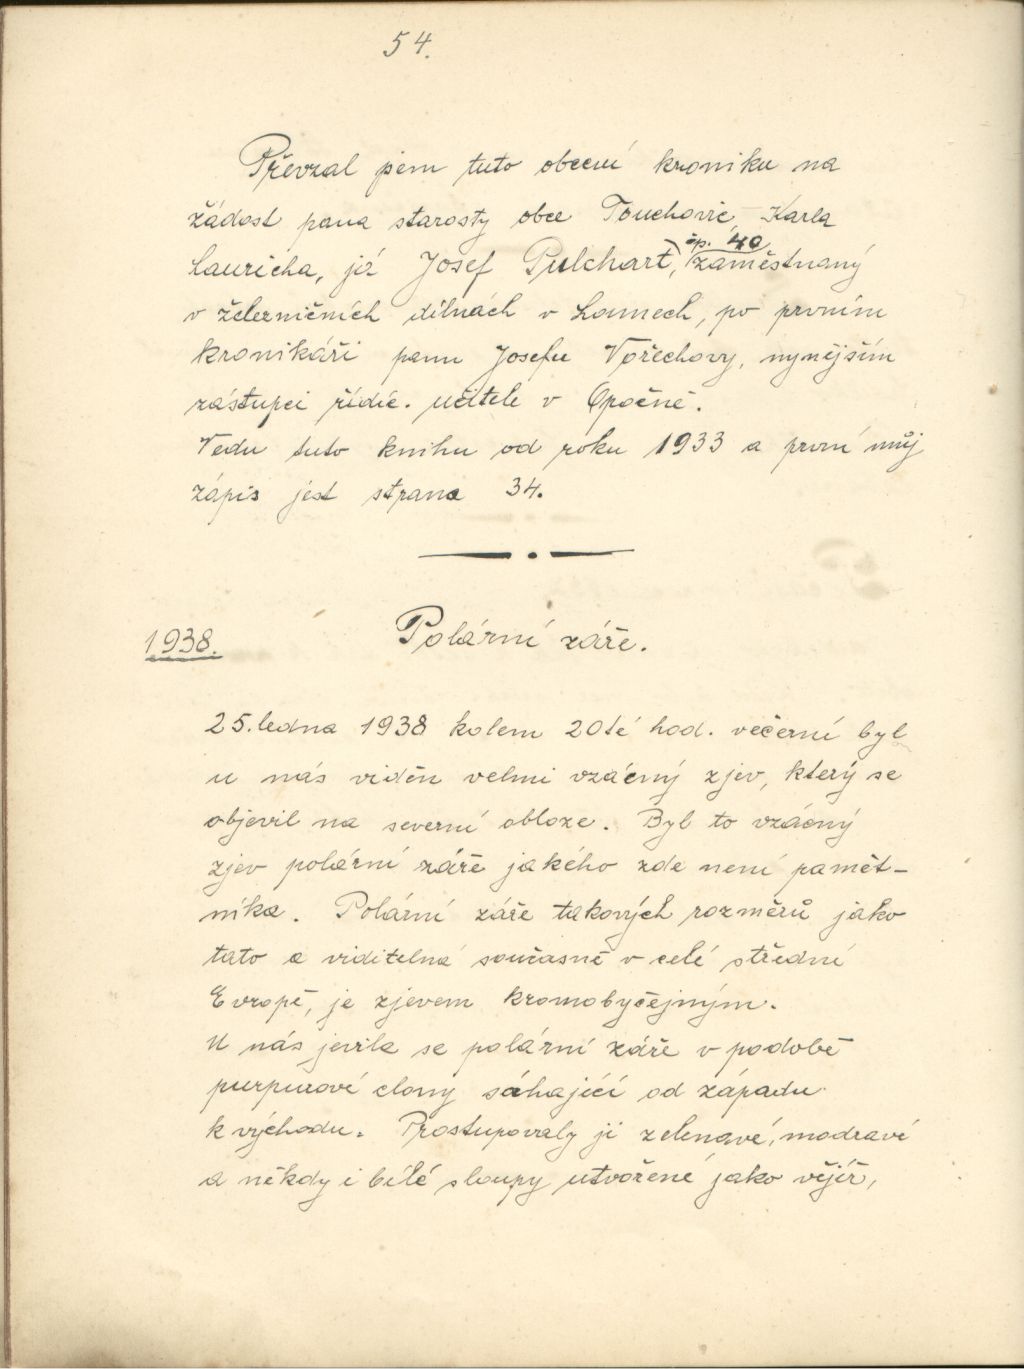 54.
Převzal jsem tuto obecní kroniku na
žádost pana starosty obce Touchovic Karla
Lauricha, já Josef Pulchart, čp. 40 zaměstnaný
v železničních dílnách v Lounech, po prvním
kronikáři panu Josefu Vořechovy, nynějším
zástupci řídíc. učitele v Opočně.
Vedu tuto knihu od roku 1933 a první můj
zápis jest strana 34.
1938. Polární záře.
25. ledna 1938 kolem 20té hod. večerní byl
u nás viděn velmi vzácný zjev, který se
objevil na severní obloze. Byl to vzácný
zjev polární záře jakého zde není pamět-
níka. Polární záře takových rozměrů jako
tato a viditelná současně v celé střední
Evropě, je zjevem kromobyčejným.
U nás jevila se polární záře v podobě
purpurové clony sáhající od západu
k východu. Prostupovaly ji zelenavé, modravé
a někdy i bílé sloupy utvořené jako vějíř,